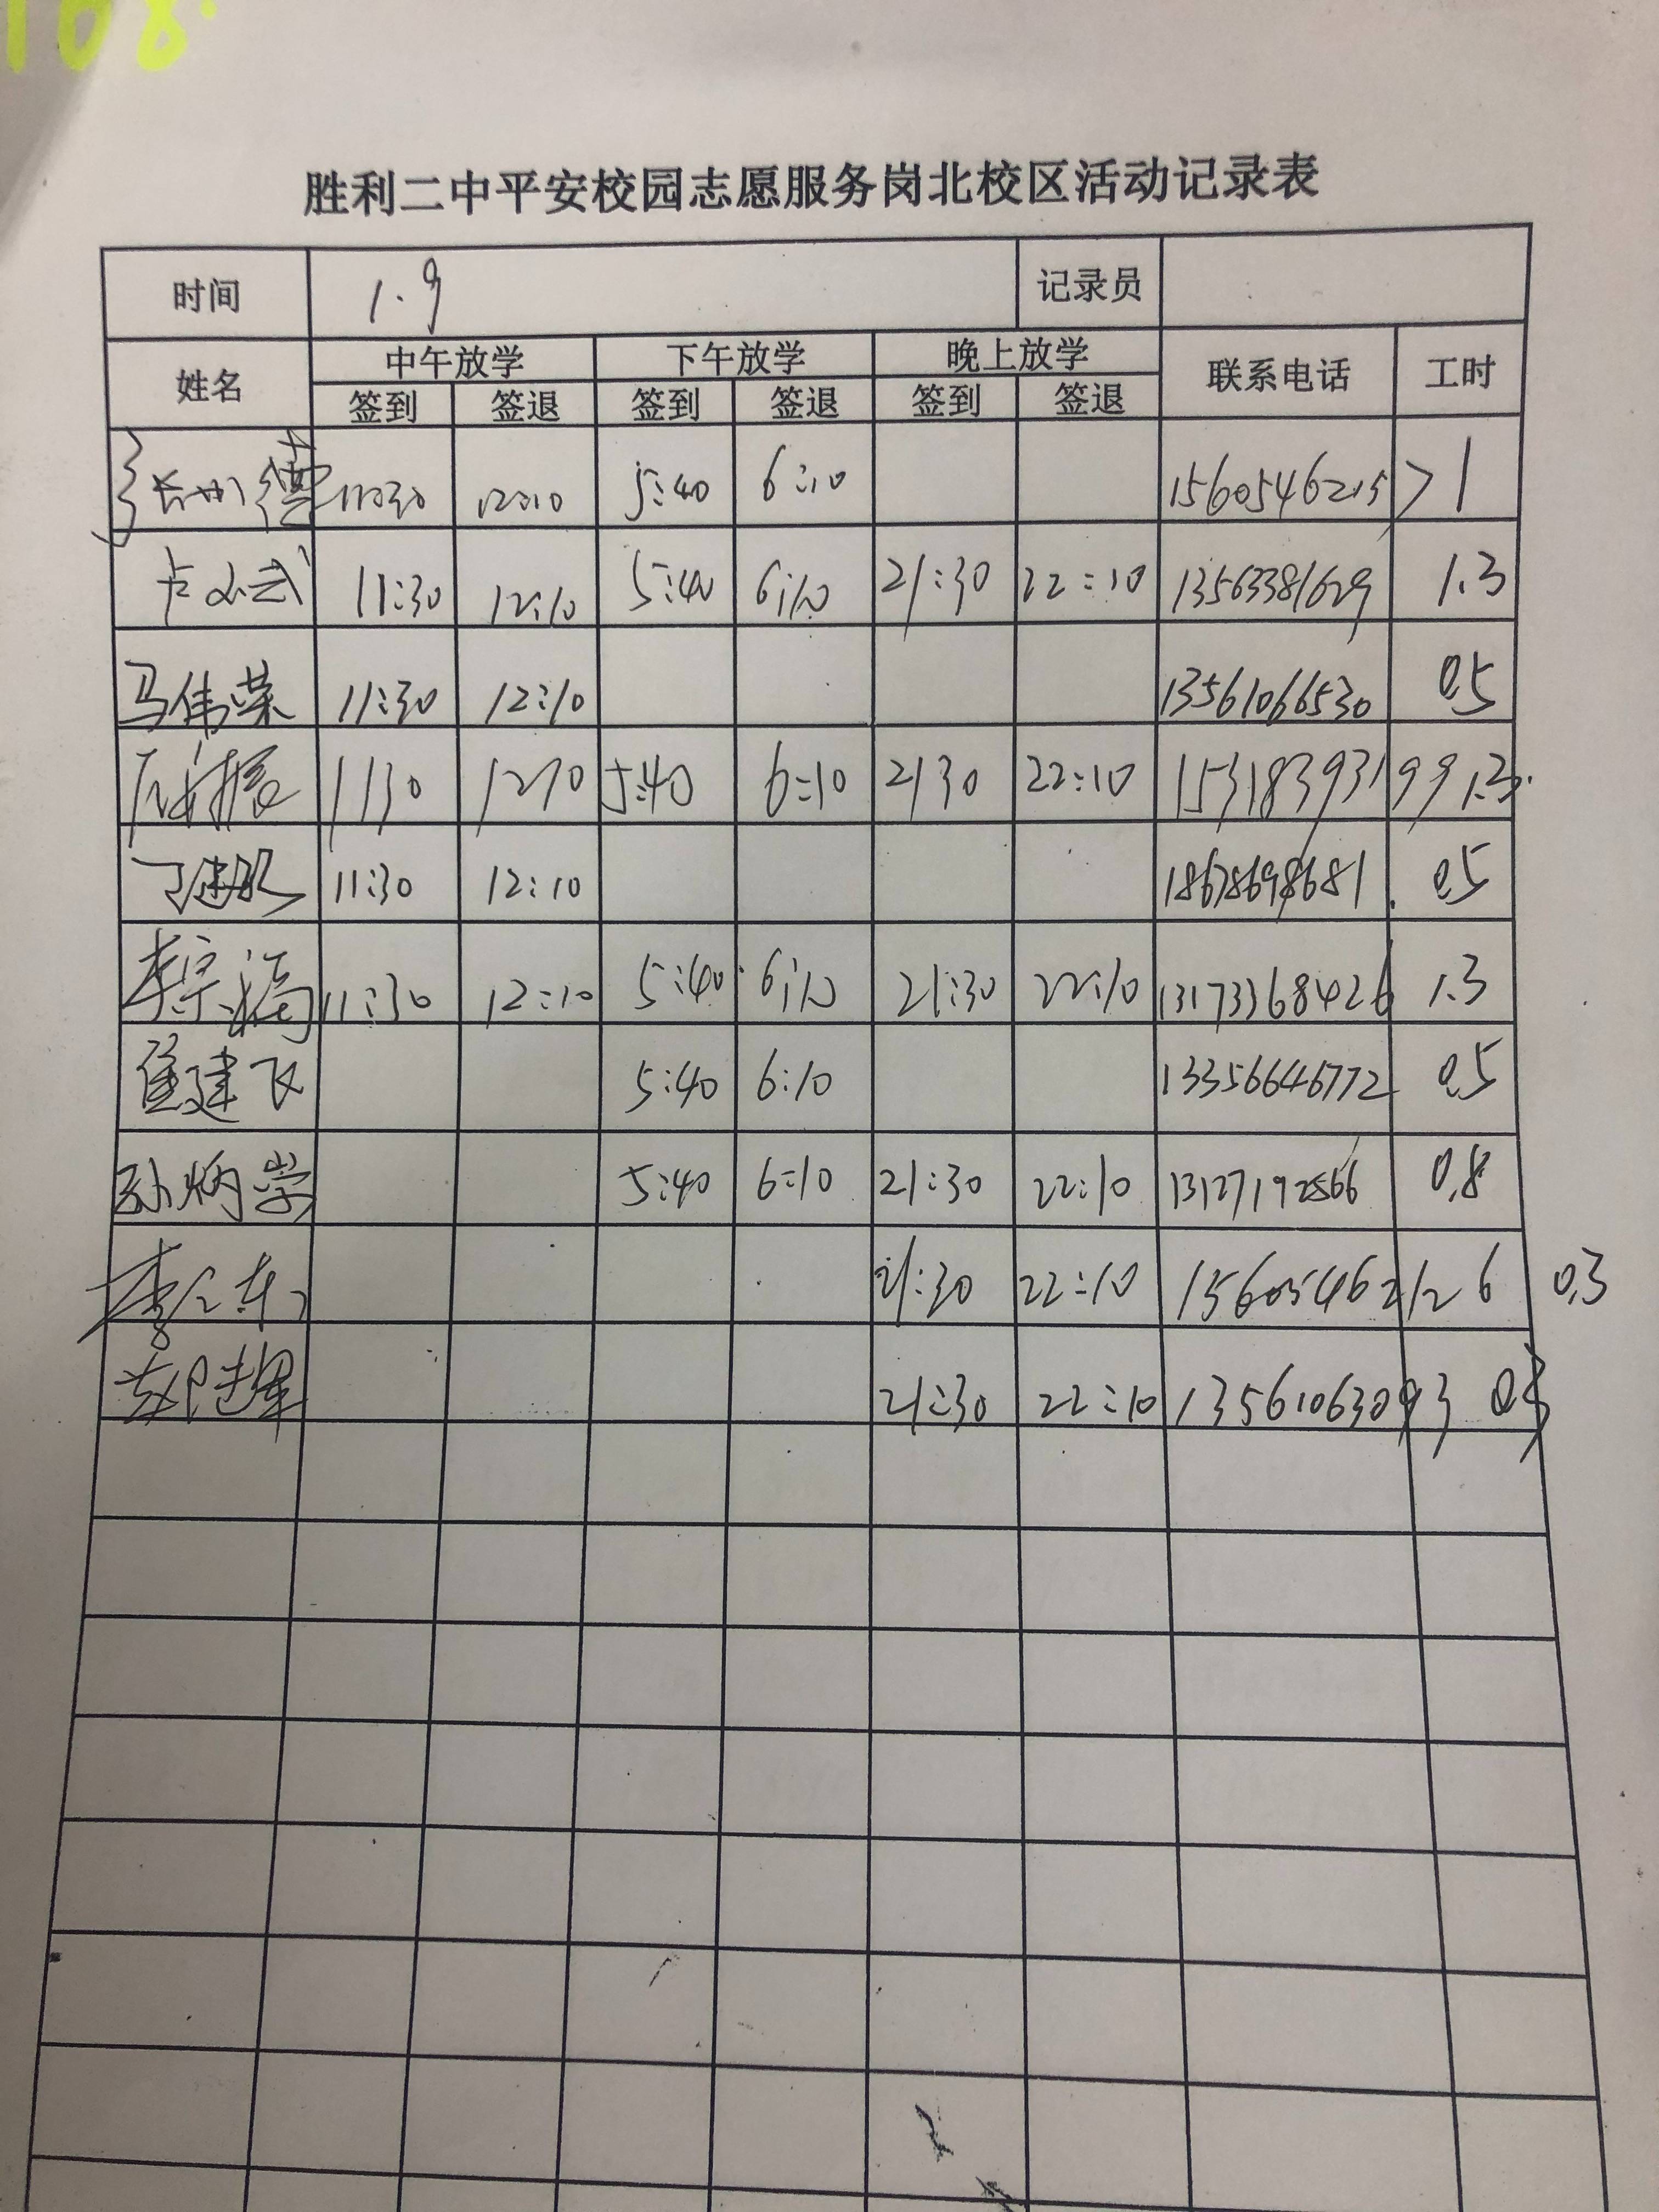 108.
胜利二中平安校园志愿服务岗北校区活动记录表
时间 1.9 记录员
姓名 中午放学 下午放学 晚上放学 联系电话 工时
签到 签退 签到 签退 签到 签退
11:30 12:10 5:40 6:10 15605462157 1
11:30 12:10 5:40 6:10 21:30 22:10 13563381629 1.3
马伟荣 11:30 12:10 13561066530 0.5
1130 1210 5:40 6:10 2130 22:10 15318393199 1.3.
11:30 12:10 18678698681. 0.5
李宗福 11:30 12:10 5:40 6:10 21:30 22:10 13173368426 1.3
崔建飞 5:40 6:10 13356646772 0.5
孙炳学 5:40 6:10 21:30 22:10 13127192566 0.8
21:30 22:10 13605462126 0.3
赵建军 21:30 22:10 13561063093 0.3